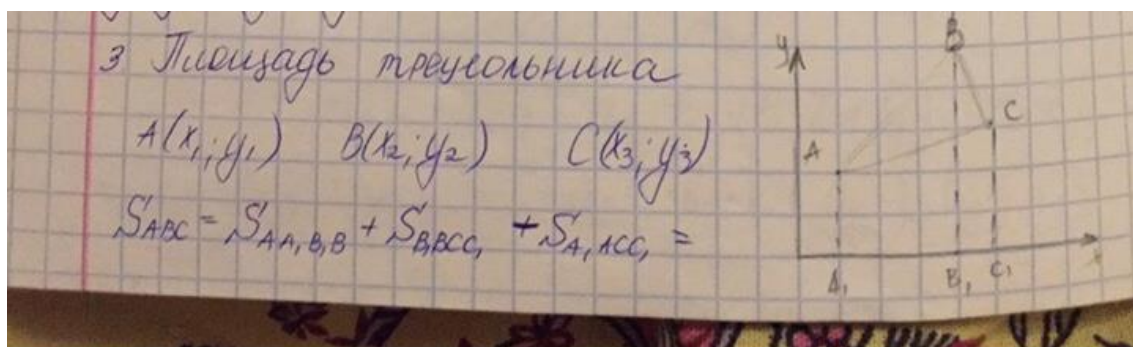 3 Площадь треугольника
A(x₁;y₁) B(x₂;y₂) C(x₃;y₃)
S_ABC = S_AA₁B₁B + S_B₁BCC₁ + S_A₁ACC₁ =
y
B
C
A
A₁ B₁ C₁
x